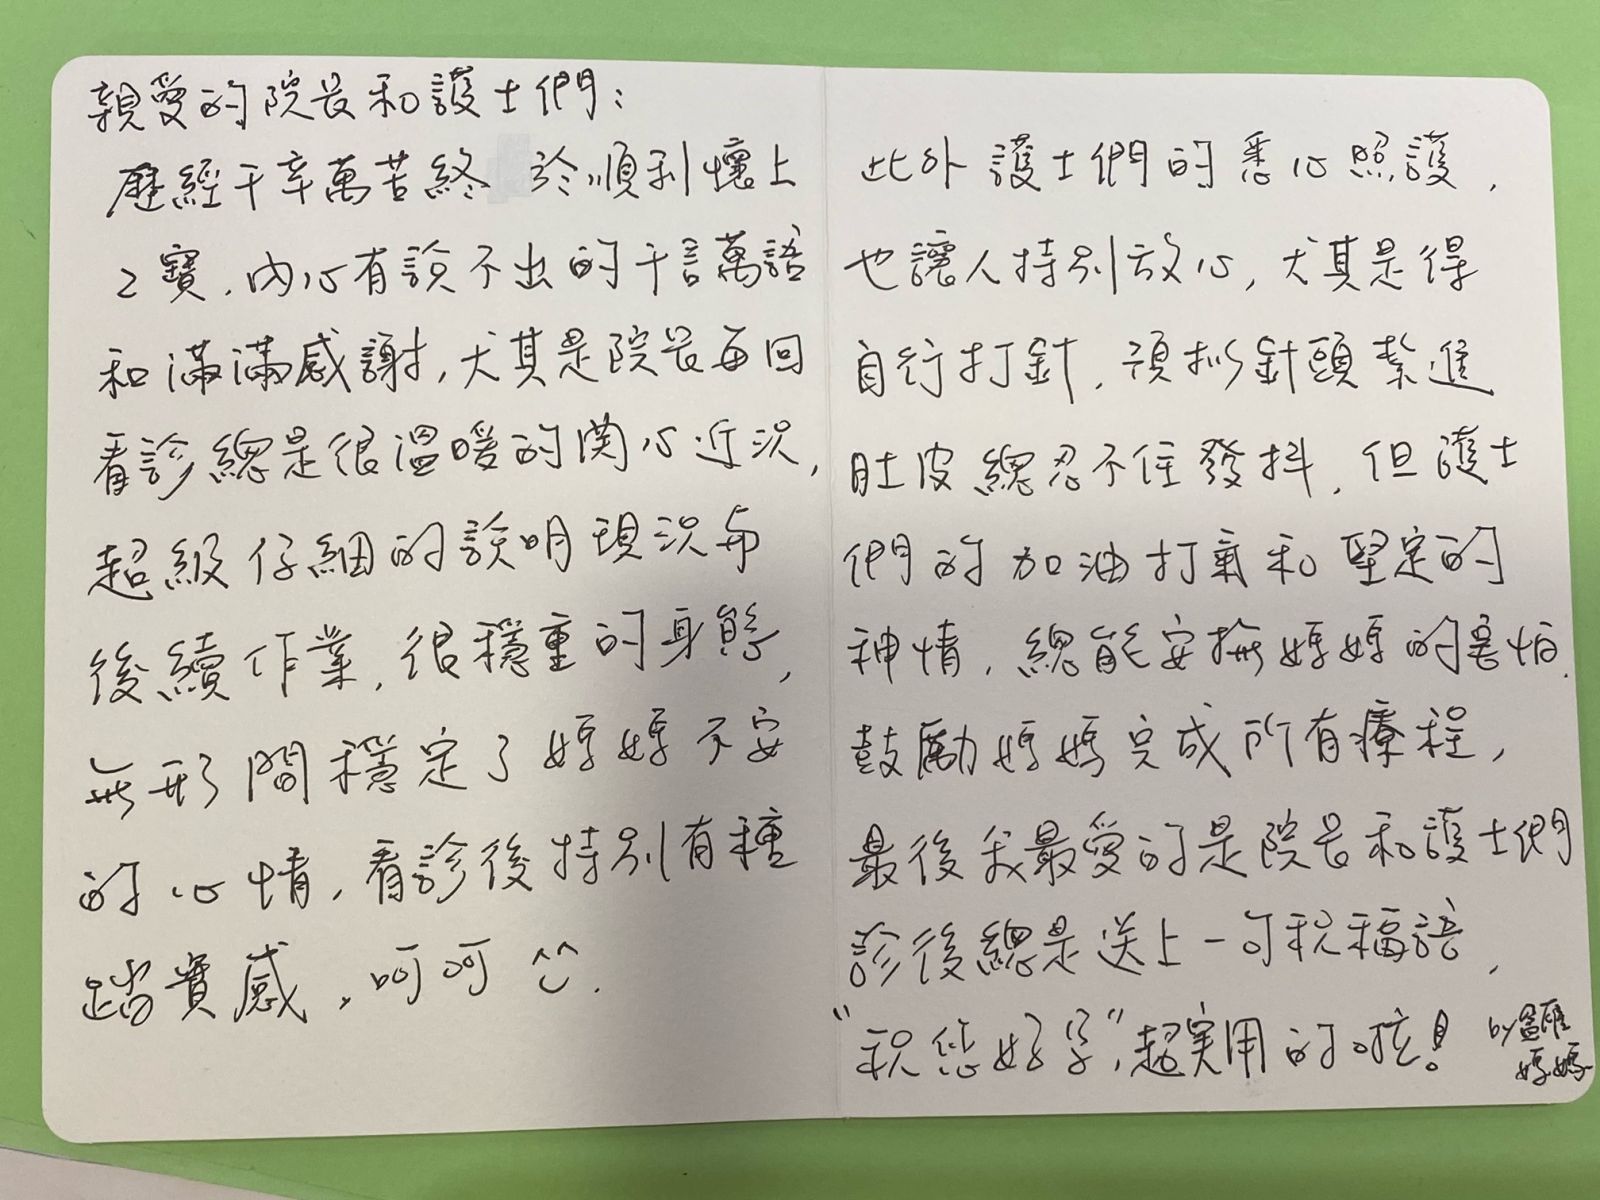 親愛的院長和護士們：
歷經千辛萬苦終於順利懷上
2寶，內心有說不出的千言萬語
和滿滿感謝，尤其是院長每回
看診總是很溫暖的関心近況，
超級仔細的說明現況与
後續作業，很穩重的身影，
無形間穩定了媽媽不安
的心情，看診後特別有種
踏實感，呵呵
此外護士們的悉心照護，
也讓人特別放心，尤其是得
自行打針，預拟針頭紮進
肚皮總忍不住發抖，但護士
們的加油打氣和堅定的
神情，總能安撫媽媽的害怕，
鼓勵媽媽完成所有療程，
最後我最愛的是院長和護士們
診後總是送上一句祝福語，
"祝您好孕"，超實用的啦！
by
媽媽